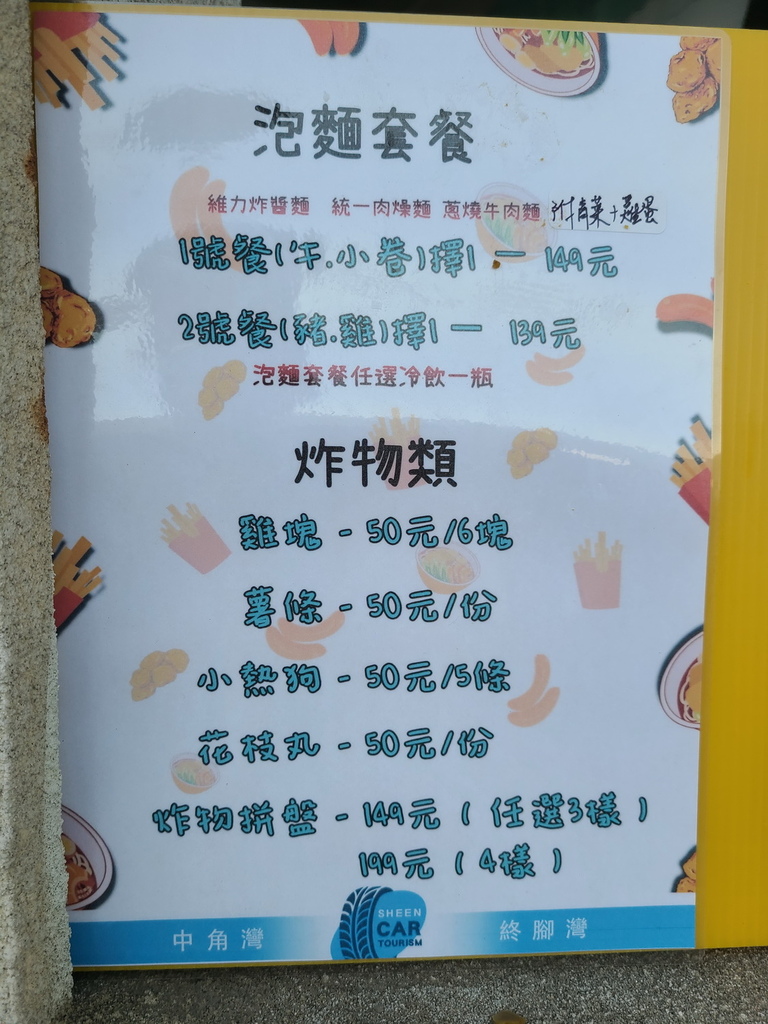 泡麵套餐
維力炸醬麵 統一肉燥麵 蔥燒牛肉麵 附青菜+雞蛋
1號餐(牛.小卷)擇1 — 149元
2號餐(豬.雞)擇1 — 139元
泡麵套餐任選冷飲一瓶
炸物類
雞塊 - 50元/6塊
薯條 - 50元/份
小熱狗 - 50元/5條
花枝丸 - 50元/份
炸物拼盤 - 149元 ( 任選3樣 )
199元 ( 4樣 )
中角灣
SHEEN
CAR
TOURISM
終腳灣